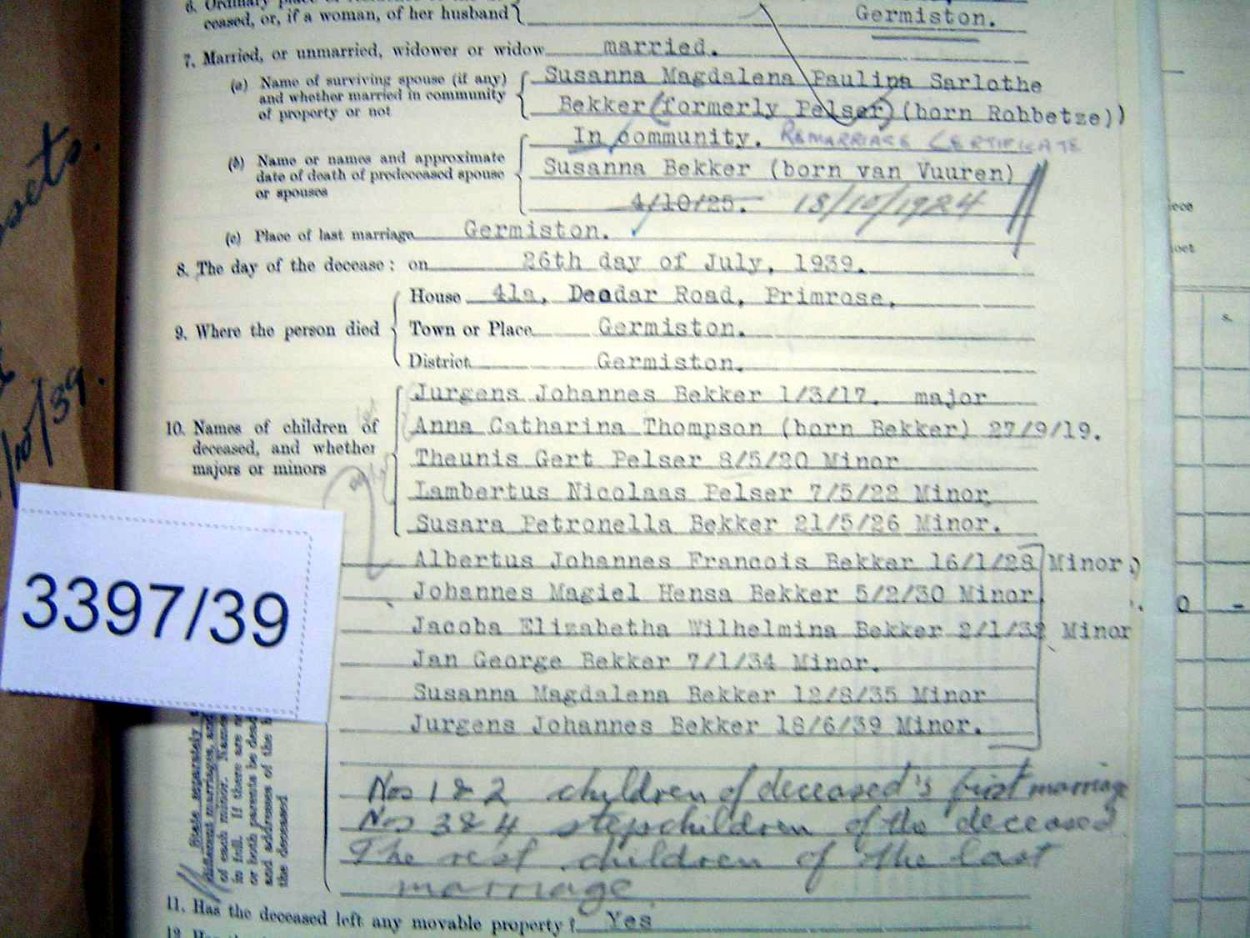 6. Ordinary place of
ceased, or, if a woman, of her husband Germiston.
7. Married, or unmarried, widower or widow married.
(a) Name of surviving spouse (if any) and whether married in community of property or not
Susanna Magdalena Paulina Sarlothe
Bekker (formerly Pelser) (born Robbetze))
In community. REMARRIAGE CERTIFICATE
(b) Name or names and approximate date of death of predeceased spouse or spouses
Susanna Bekker (born van Vuuren)
4/10/25. 18/10/1924
(c) Place of last marriage Germiston.
8. The day of the decease: on 26th day of July, 1939.
9. Where the person died
House 41a, Deodar Road, Primrose,
Town or Place Germiston.
District Germiston.
10. Names of children of deceased, and whether majors or minors
Jurgens Johannes Bekker 1/3/17. major
Anna Catharina Thompson (born Bekker) 27/9/19.
Theunis Gert Pelser 8/5/20 Minor
Lambertus Nicolaas Pelser 7/5/22 Minor
Susara Petronella Bekker 21/5/26 Minor.
Albertus Johannes Francois Bekker 16/1/28 Minor
Johannes Magiel Hensa Bekker 5/2/30 Minor
Jacoba Elizabetha Wilhelmina Bekker 2/1/32 Minor
Jan George Bekker 7/1/34 Minor.
Susanna Magdalena Bekker 12/8/35 Minor
Jurgens Johannes Bekker 18/6/39 Minor.
State separately
different marriages, and
of each minor. Names
in full. If there are
or both parents be dead
and addresses of the
the deceased
Nos 1 & 2 children of deceased's first marriage
Nos 3 & 4 stepchildren of the deceased
The rest children of the last
marriage
11. Has the deceased left any movable property? Yes
12.
3397/39
10/39.
s.
0 -